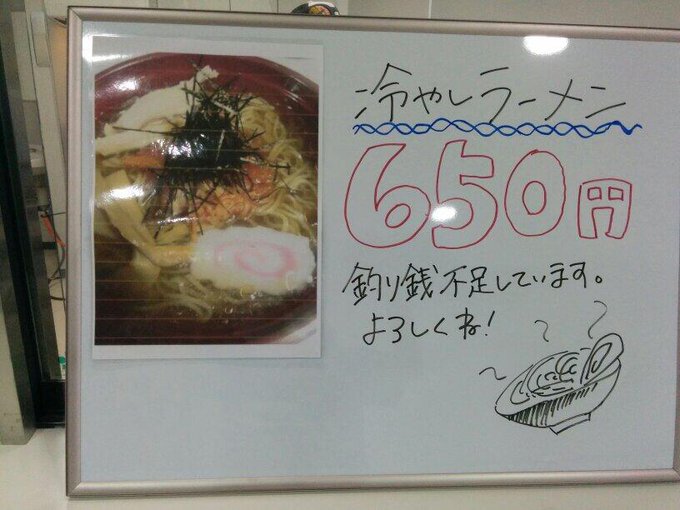 冷やしラーメン
650円
釣り銭不足しています。
よろしくね!